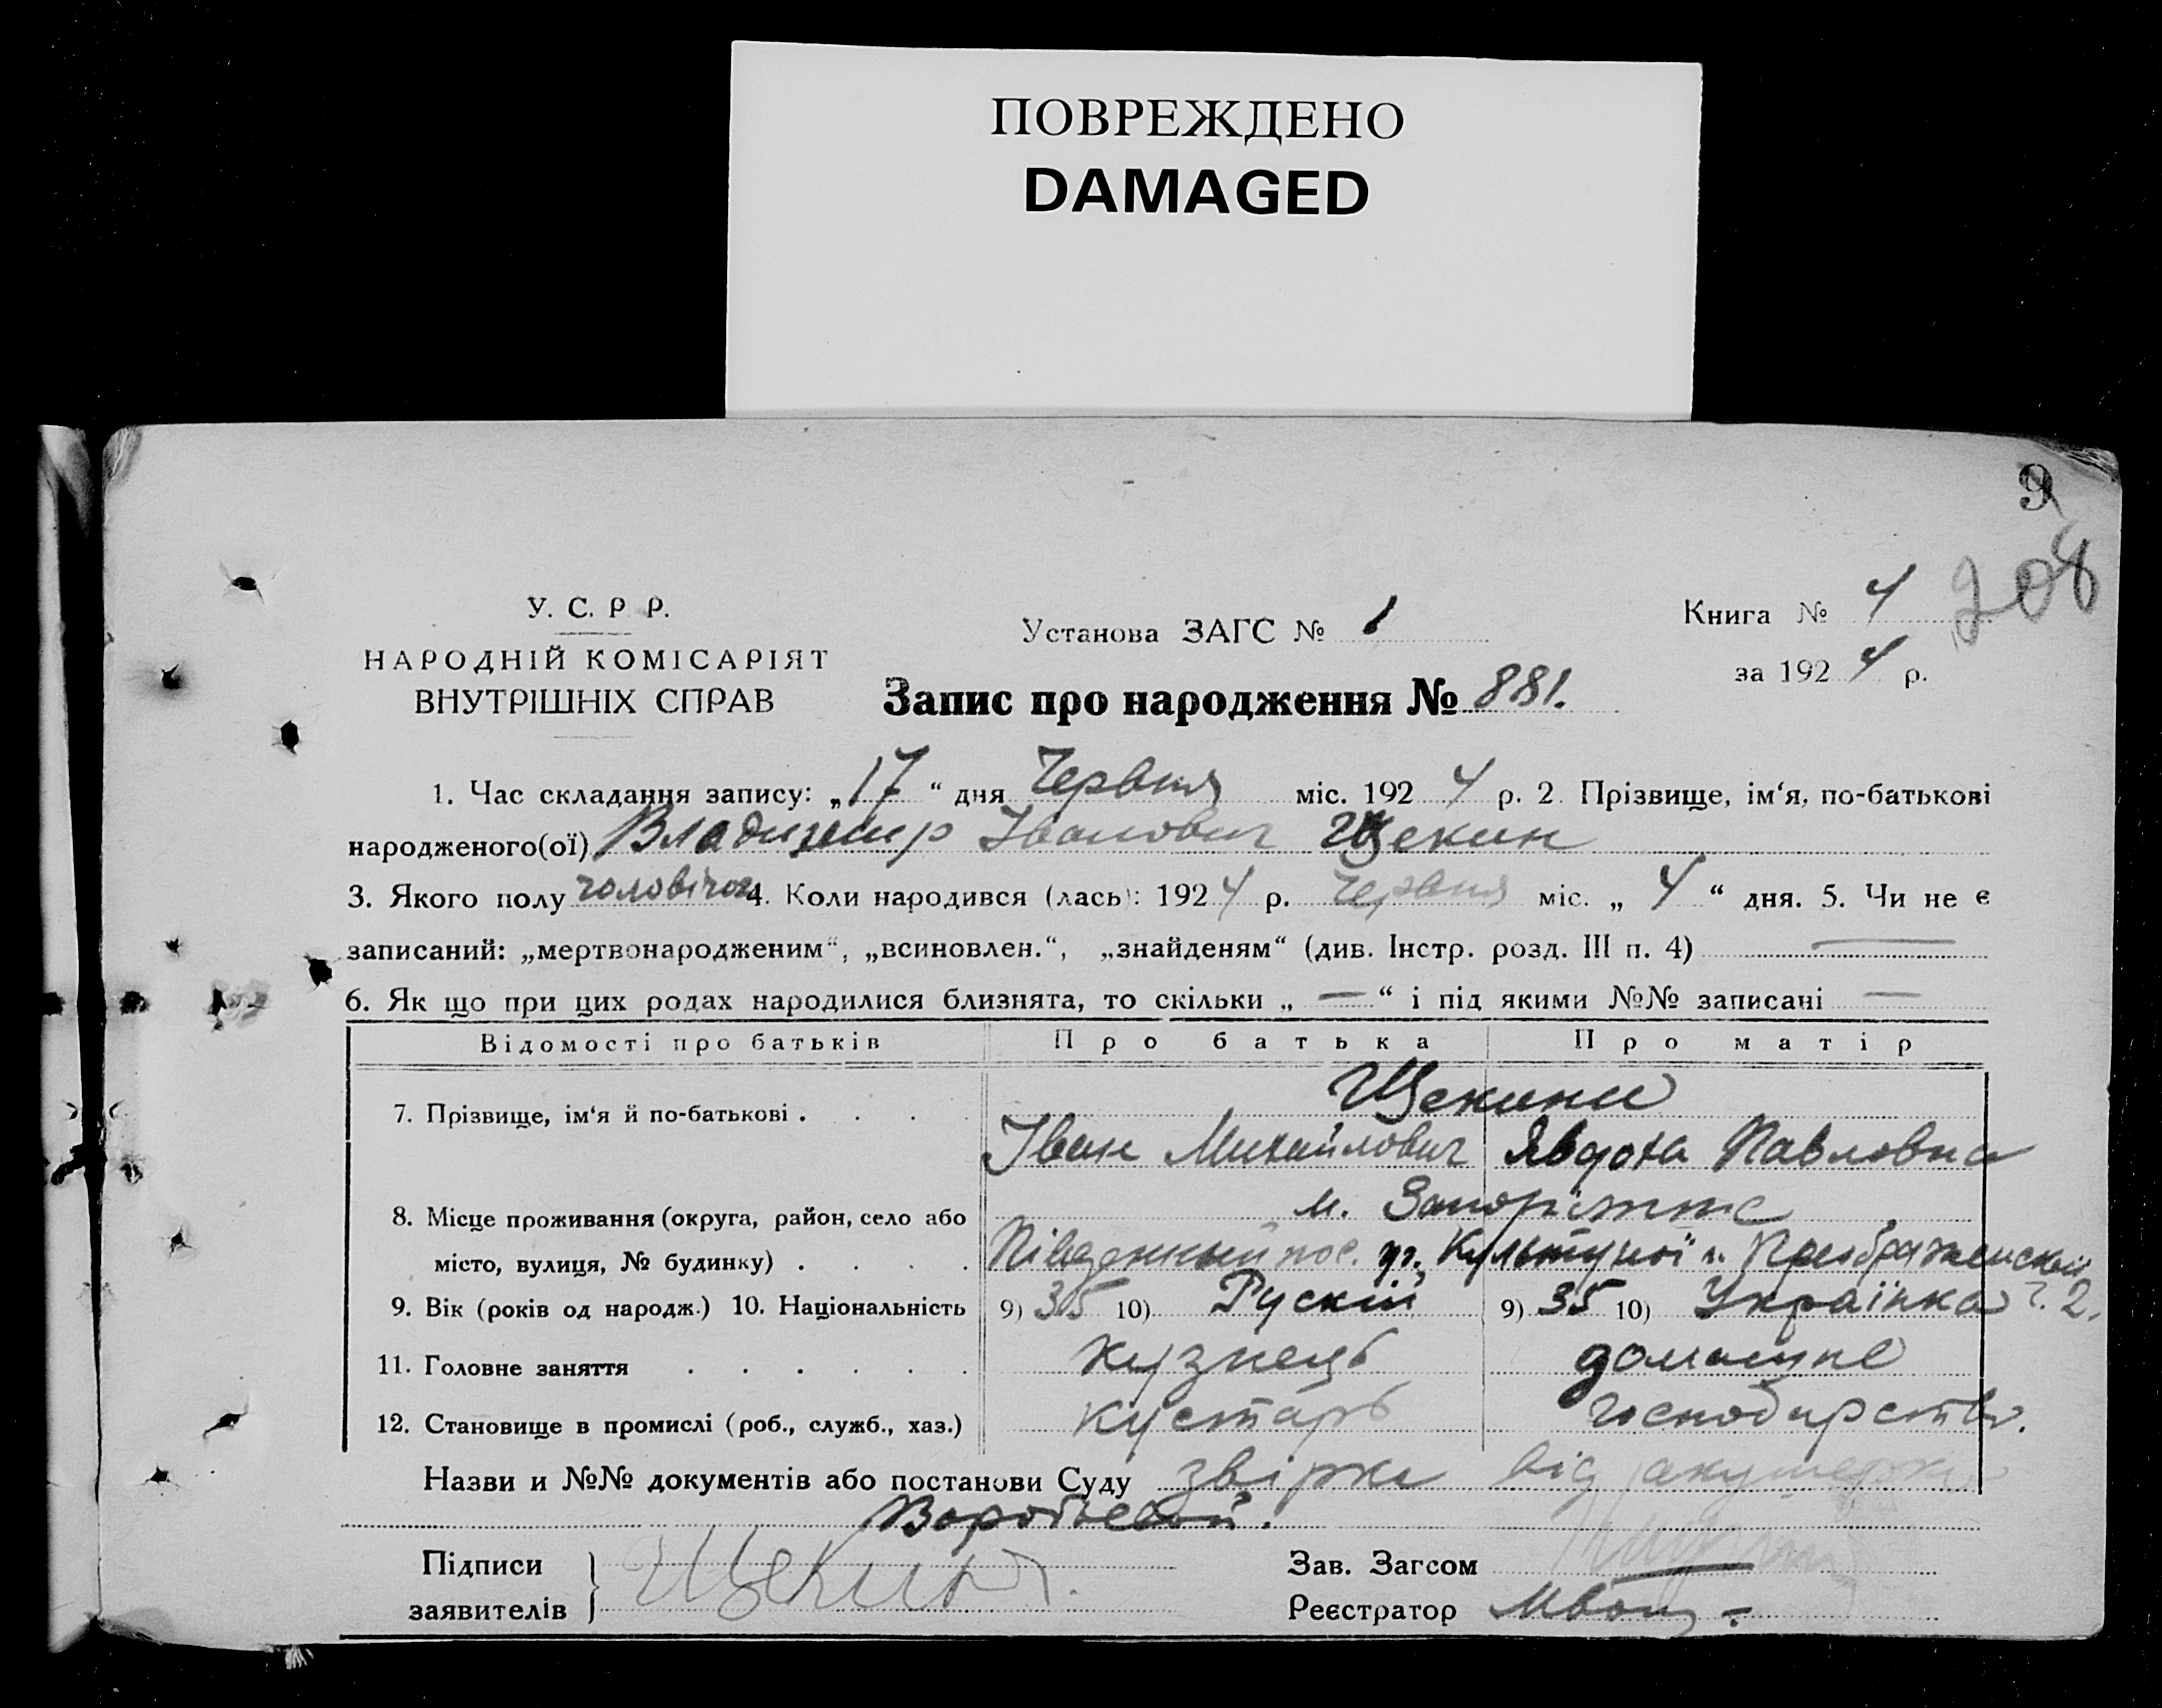 ПОВРЕЖДЕНО
DAMAGED
9
208
У. С. Р Р.
НАРОДНІЙ КОМІСАРІЯТ
ВНУТРІШНІХ СПРАВ
Установа ЗАГС № 1
Книга № 4
за 1924 р.
Запис про народження № 881.
1. Час складання запису: „17“ дня Червня міс. 1924 р. 2. Прізвище, ім‘я, по-батькові
народженого(ої) Владимир Іванович Щекин
3. Якого полу чоловічог 4. Коли народився (лась): 1924 р. Червня міс. „4“ дня. 5. Чи не є
записаний: „мертвонародженим“, „всиновлен.“, „знайденям“ (див. Інстр. розд. III п. 4) —
6. Як що при цих родах народилися близнята, то скільки „—“ і під якими №№ записані —
Відомості про батьків Про батька Про матір
7. Прізвище, ім‘я й по-батькові . . . . Щекини
Іван Михайлович Явдоха Павловна
8. Місце проживання (округа, район, село або м. Запоріжжє
місто, вулиця, № будинку) . . . . Південный пос. уг. Культурної и Преображенской
9. Вік (років од народж.) 10. Національність 9) 35 10) Рускій 9) 35 10) Українка ч. 2.
11. Головне заняття . . . . . . кузнець домашнє
12. Становище в промислі (роб., служб., хаз.) кустарь господарство.
Назви и №№ документів або постанови Суду звірка від акушерки
Воробьевой.
Підписи
заявителів } Щекин
Зав. Загсом
Реєстратор